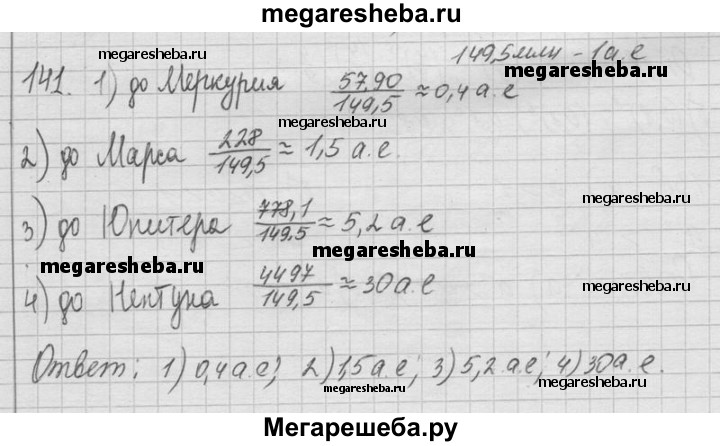 megaresheba.ru
megaresheba.ru 149,5 млн - 1 а.е
megaresheba.ru
141. 1) до Меркурия 57,90/149,5 ≈ 0,4 а.е
megaresheba.ru
2) до Марса 228/149,5 ≈ 1,5 а.е.
megaresheba.ru
3) до Юпитера 778,1/149,5 ≈ 5,2 а.е
megaresheba.ru
megaresheba.ru
4) до Нептуна 4497/149,5 ≈ 30 а.е
megaresheba.ru
Ответ: 1) 0,4 а.е; 2) 1,5 а.е; 3) 5,2 а.е; 4) 30 а.е.
megaresheba.ru
megaresheba.ru
Мегарешеба.ру